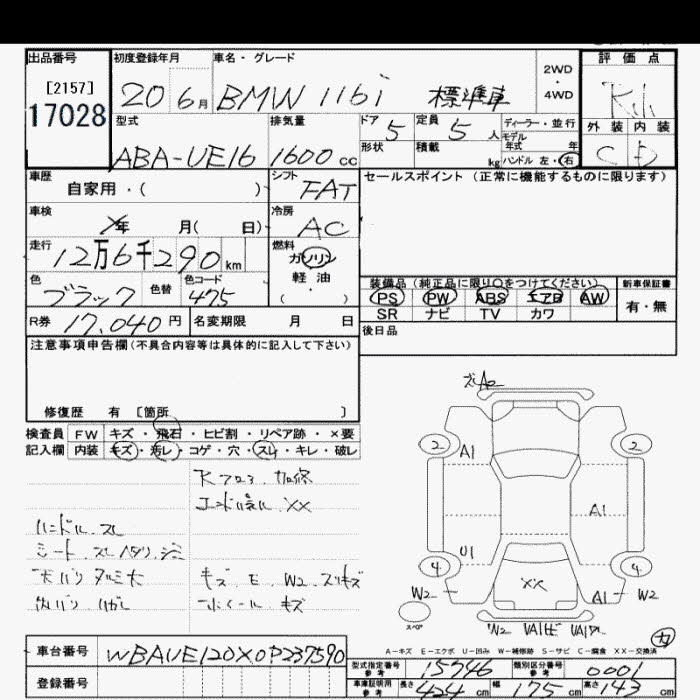 出品番号
[2157]
17028
初度登録年月
20 6月
車名・グレード
BMW 116i 標準車
2WD
・
4WD
評価点
外装 内装
C D
型式
ABA-UE16
排気量
1600 cc
ドア
5
定員
5 人
形状
積載
kg
ディーラー・並行
モデル
年式 年
ハンドル 左・右
車歴
自家用・( )
シフト
FAT
セールスポイント (正常に機能するものに限ります)
車検
年 月( 日)
冷房
AC
走行
12万6千290 km
燃料
ガソリン
軽油
( )
色
ブラック
色替
色コード
475
装備品 (純正品に限り○をつけてください)
PS PW ABS エアB AW
SR ナビ TV カワ
新車保証書
有・無
R券 17,040 円
名変期限 月 日
後日品
注意事項申告欄(不具合内容等は具体的に記入して下さい)
修復歴 有 [箇所 ]
検査員
記入欄
FW キズ・飛石・ヒビ割・リペア跡・×要
内装 キズ・汚レ・コゲ・穴・スレ・キレ・破レ
XX
ハンドル.スレ
シート.スレ
キズ.E.W2.
ホイール.キズ
A2
2 2
A1
A1
U1
4 4
W2 XX A1 W2
スペア
W2
A-キズ E-エクボ U-凹み W-補修跡 S-サビ C-腐食 XX-交換済
車台番号
WBAUE120X0P237590
登録番号
型式指定番号
参考
15746
類別区分番号
参考
0001
車庫証明用
参考
長さ 424 cm 幅 175 cm 高さ 143 cm